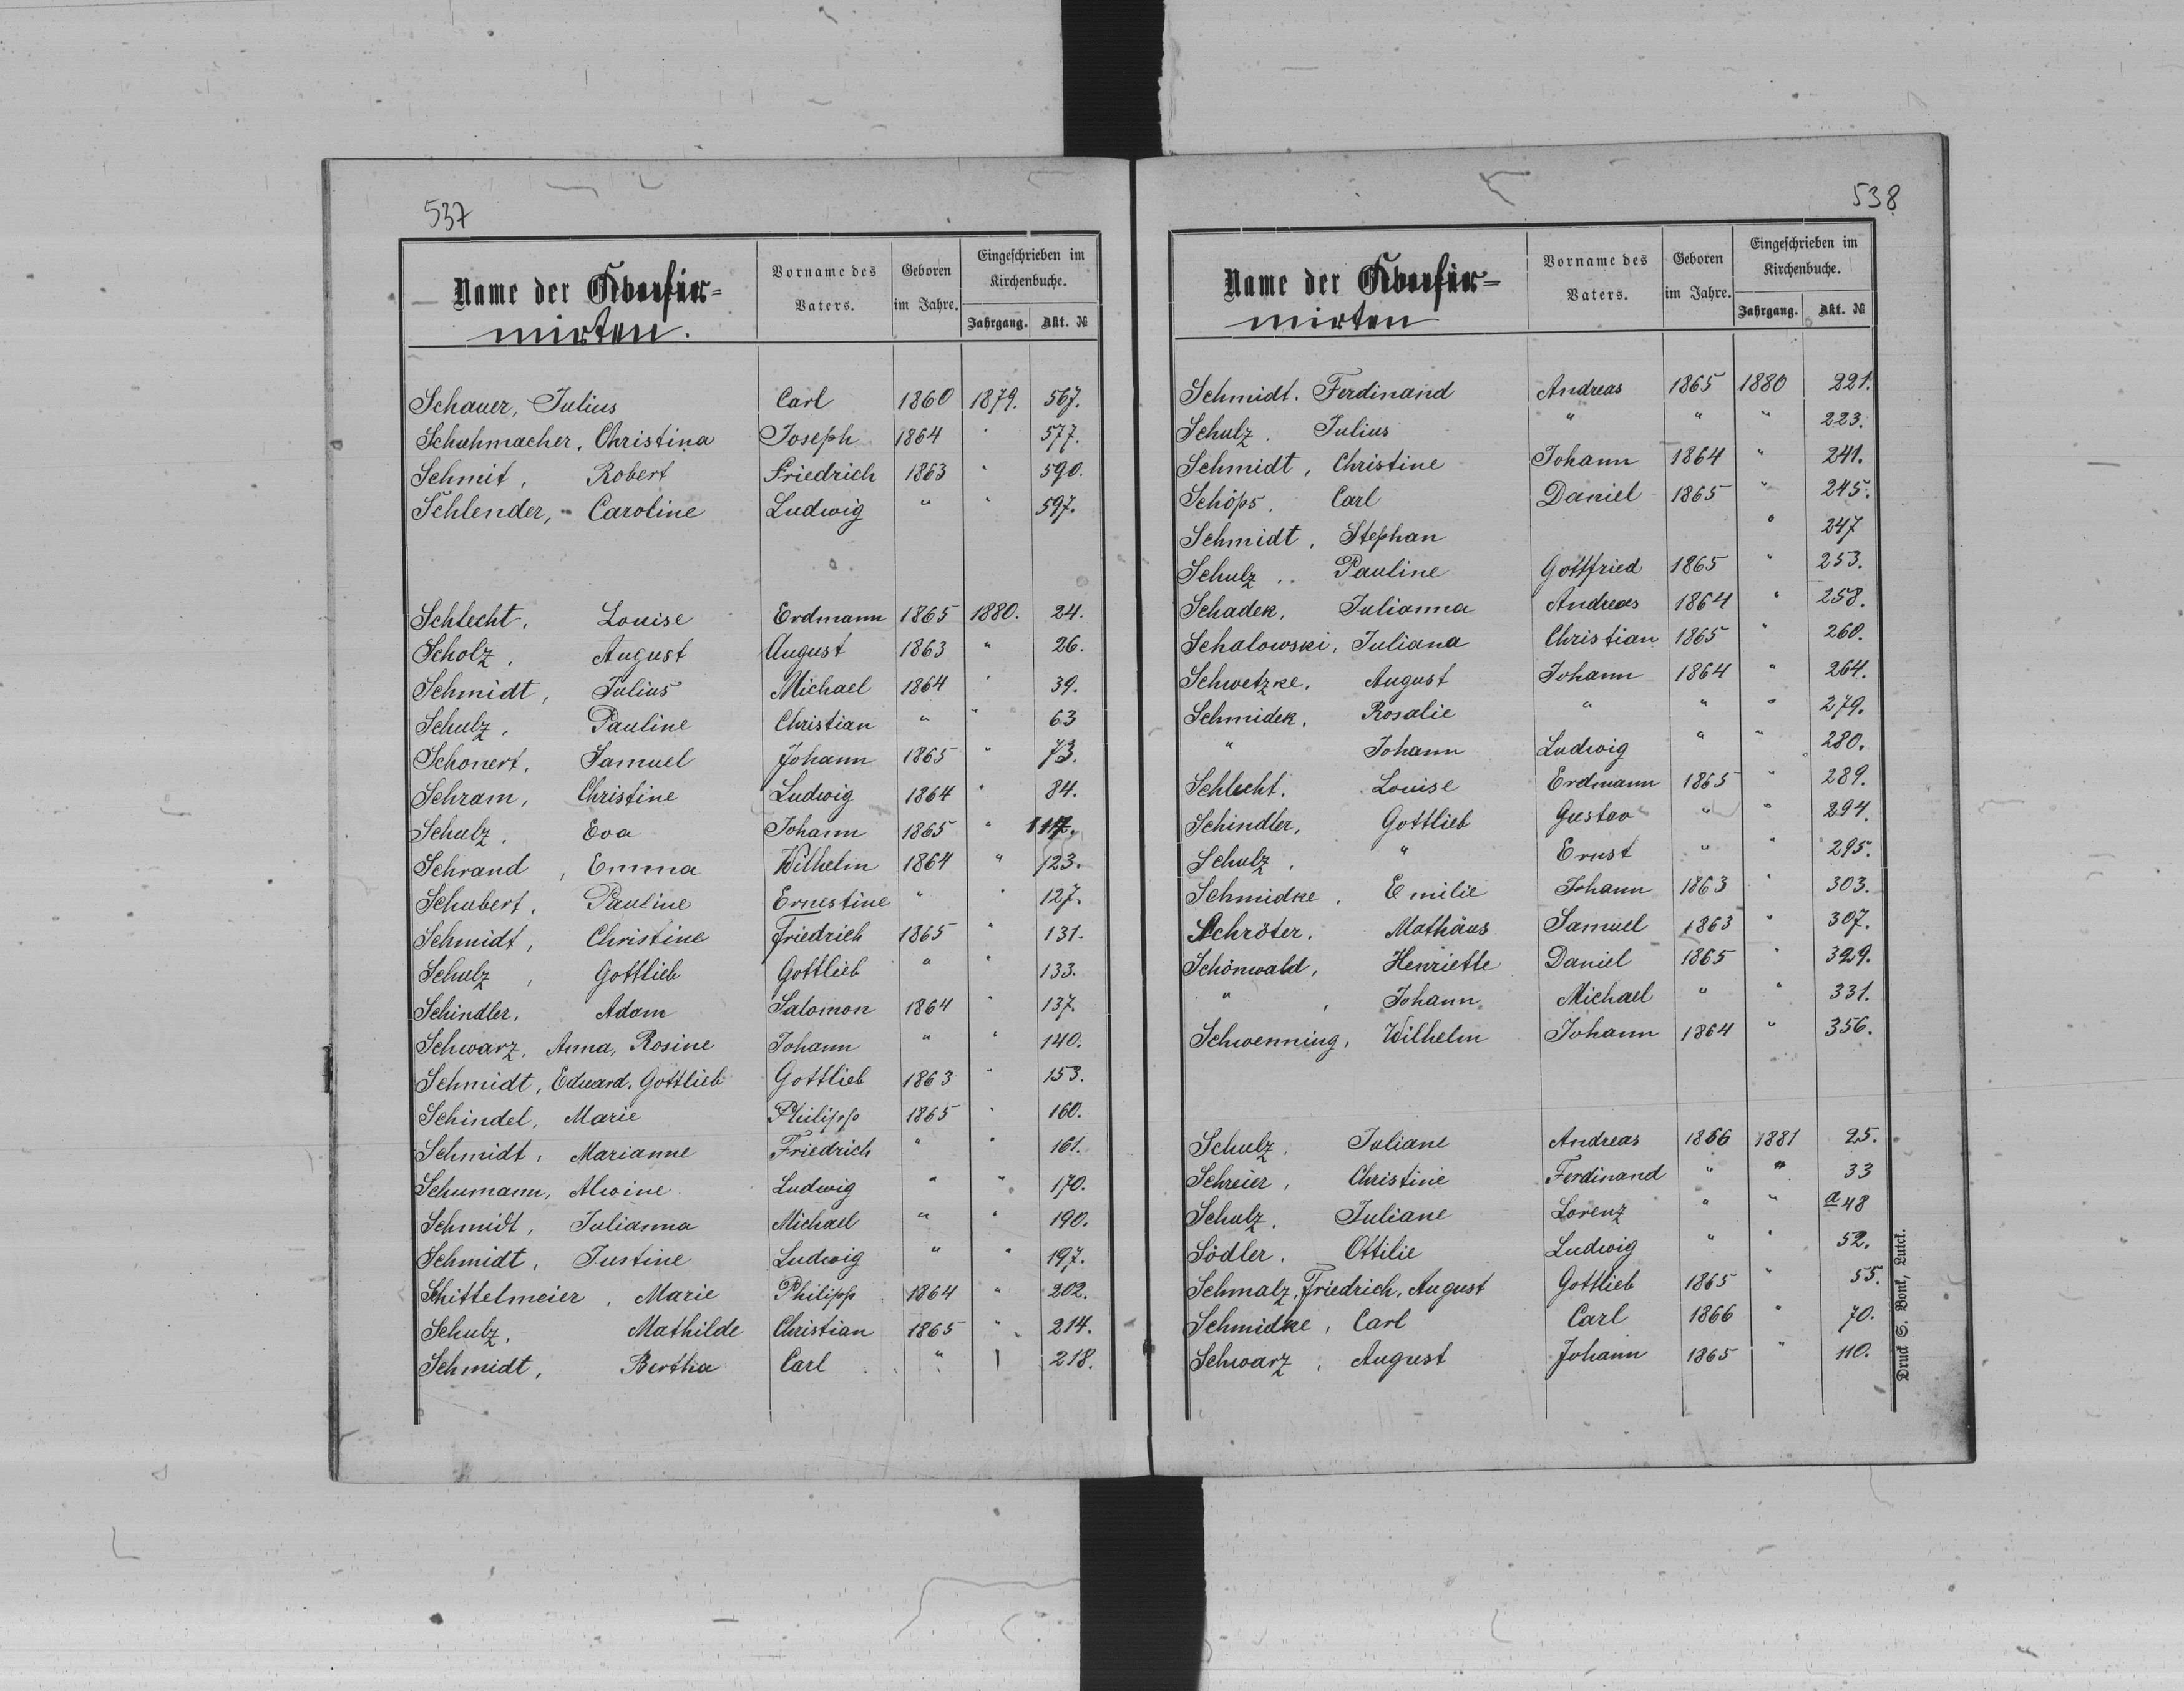 537
Name der Confir=
mirten.
Vorname des Vaters.
Geboren im Jahre.
Eingeschrieben im Kirchenbuche.
Jahrgang. Akt. №
Schauer, Julius Carl 1860 1879. 567.
Schuhmacher, Christina Joseph 1864 " 577.
Schmit, Robert Friedrich 1863 " 590.
Schlender, Caroline Ludwig " " 597.
Schlecht, Louise Erdmann 1865 1880. 24.
Scholz, August August 1863 " 26.
Schmidt, Julius Michael 1864 " 39.
Schulz, Pauline Christian " " 63
Schonert, Samuel Johann 1865 " 73.
Schram, Christine Ludwig 1864 " 84.
Schulz, Eva Johann 1865 " 117.
Schrand, Emma Wilhelm 1864 " 123.
Schubert, Pauline Ernestine " " 127.
Schmidt, Christine Friedrich 1865 " 131.
Schulz, Gottlieb Gottlieb " " 133.
Schindler, Adam Salomon 1864 " 137.
Schwarz, Anna, Rosine Johann " " 140.
Schmidt, Eduard, Gottlieb Gottlieb 1863 " 153.
Schindel, Marie Philipp 1865 " 160.
Schmidt, Marianne Friedrich " " 161.
Schumann, Alwine Ludwig " " 170.
Schmidt, Julianna Michael " " 190.
Schmidt, Justine Ludwig " " 197.
Schittelmeier, Marie Philipp 1864 " 202.
Schulz, Mathilde Christian 1865 " 214.
Schmidt, Bertha Carl " " 218.
538
Name der Confir=
mirten
Vorname des Vaters.
Geboren im Jahre.
Eingeschrieben im Kirchenbuche.
Jahrgang. Akt. №
Schmidt. Ferdinand Andreas 1865 1880 221.
Schulz. Julius " " " 223.
Schmidt, Christine Johann 1864 " 241.
Schöps, Carl Daniel 1865 " 245.
Schmidt, Stephan " 247
Schulz, Pauline Gottfried 1865 " 253.
Schadek, Julianna Andreas 1864 " 258.
Schalowski, Juliana Christian 1865 " 260.
Schwetzke, August Johann 1864 " 264.
Schmidek, Rosalie " " " 279.
" Johann Ludwig " " 280.
Schlecht. Louise Erdmann 1865 " 289.
Schindler, Gottlieb Gustav " " 294.
Schulz, " Ernst " " 295.
Schmidke, Emilie Johann 1863 " 303.
Schröter. Mathäus Samuel 1863 " 307.
Schönwald, Henriette Daniel 1865 " 329.
" , Johann Michael " " 331.
Schwenning, Wilhelm Johann 1864 " 356.
Schulz, Juliane Andreas 1866 1881 25.
Schreier, Christine Ferdinand " " 33
Schulz, Juliane Lorenz " " a 48
Södler. Ottilie Ludwig " " 52.
Schmalz, Friedrich, August Gottlieb 1865 " 55.
Schmidke, Carl Carl 1866 " 70.
Schwarz, August Johann 1865 " 110.
Druck S. Bonk, Lutck.